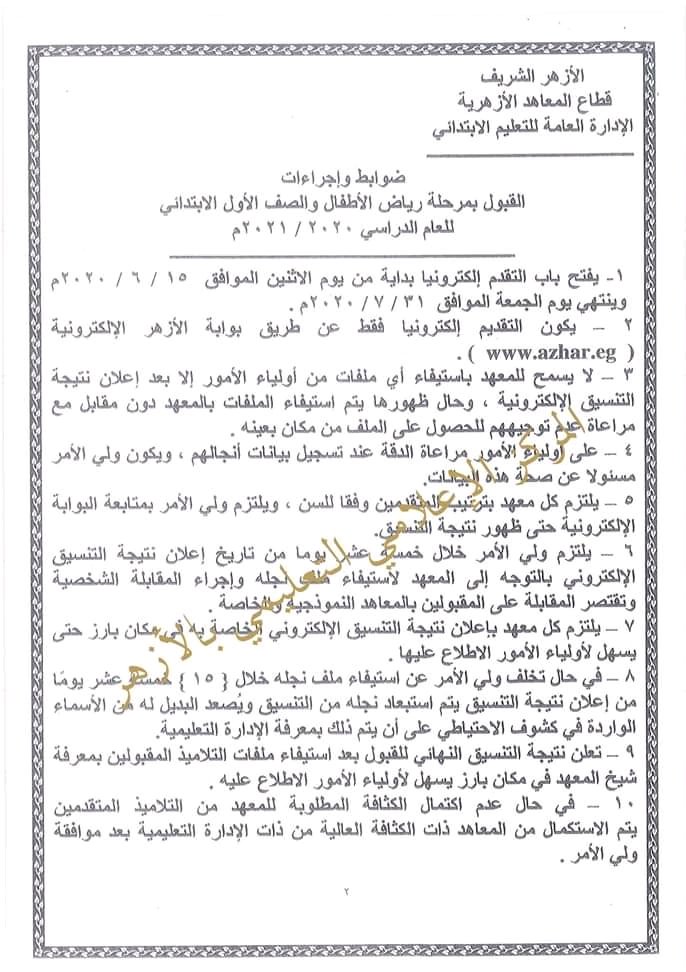 الأزهر الشريف
قطاع المعاهد الأزهرية
الإدارة العامة للتعليم الابتدائي
ضوابط وإجراءات
القبول بمرحلة رياض الأطفال والصف الأول الابتدائي
للعام الدراسي ٢٠٢٠ / ٢٠٢١م
١- يفتح باب التقدم إلكترونيا بداية من يوم الاثنين الموافق ١٥ / ٦ / ٢٠٢٠م
وينتهي يوم الجمعة الموافق ٣١ / ٧ / ٢٠٢٠م .
٢ – يكون التقديم إلكترونيا فقط عن طريق بوابة الأزهر الإلكترونية
( www.azhar.eg ) .
٣ – لا يسمح للمعهد باستيفاء أي ملفات من أولياء الأمور إلا بعد إعلان نتيجة
التنسيق الإلكترونية ، وحال ظهورها يتم استيفاء الملفات بالمعهد دون مقابل مع
مراعاة عدم توجيههم للحصول على الملف من مكان بعينه .
٤ – على أولياء الأمور مراعاة الدقة عند تسجيل بيانات أنجالهم ، ويكون ولي الأمر
مسئولا عن صحة هذه البيانات.
٥ – يلتزم كل معهد بترتيب المتقدمين وفقا للسن ، ويلتزم ولي الأمر بمتابعة البوابة
الإلكترونية حتى ظهور نتيجة التنسيق.
٦ – يلتزم ولي الأمر خلال خمسة عشر يوما من تاريخ إعلان نتيجة التنسيق
الإلكتروني بالتوجه إلى المعهد لاستيفاء ملف نجله وإجراء المقابلة الشخصية
وتقتصر المقابلة على المقبولين بالمعاهد النموذجية والخاصة .
٧ – يلتزم كل معهد بإعلان نتيجة التنسيق الإلكتروني الخاصة به في مكان بارز حتى
يسهل لأولياء الأمور الاطلاع عليها .
٨ – في حال تخلف ولي الأمر عن استيفاء ملف نجله خلال { ١٥ } خمسة عشر يومًا
من إعلان نتيجة التنسيق يتم استبعاد نجله من التنسيق ويُصعد البديل له من الأسماء
الواردة في كشوف الاحتياطي على أن يتم ذلك بمعرفة الإدارة التعليمية.
٩ – تعلن نتيجة التنسيق النهائي للقبول بعد استيفاء ملفات التلاميذ المقبولين بمعرفة
شيخ المعهد في مكان بارز يسهل لأولياء الأمور الاطلاع عليه .
١٠ – في حال عدم اكتمال الكثافة المطلوبة للمعهد من التلاميذ المتقدمين
يتم الاستكمال من المعاهد ذات الكثافة العالية من ذات الإدارة التعليمية بعد موافقة
ولي الأمر .
٢
المركز الإعلامي التعليمي بالأزهر